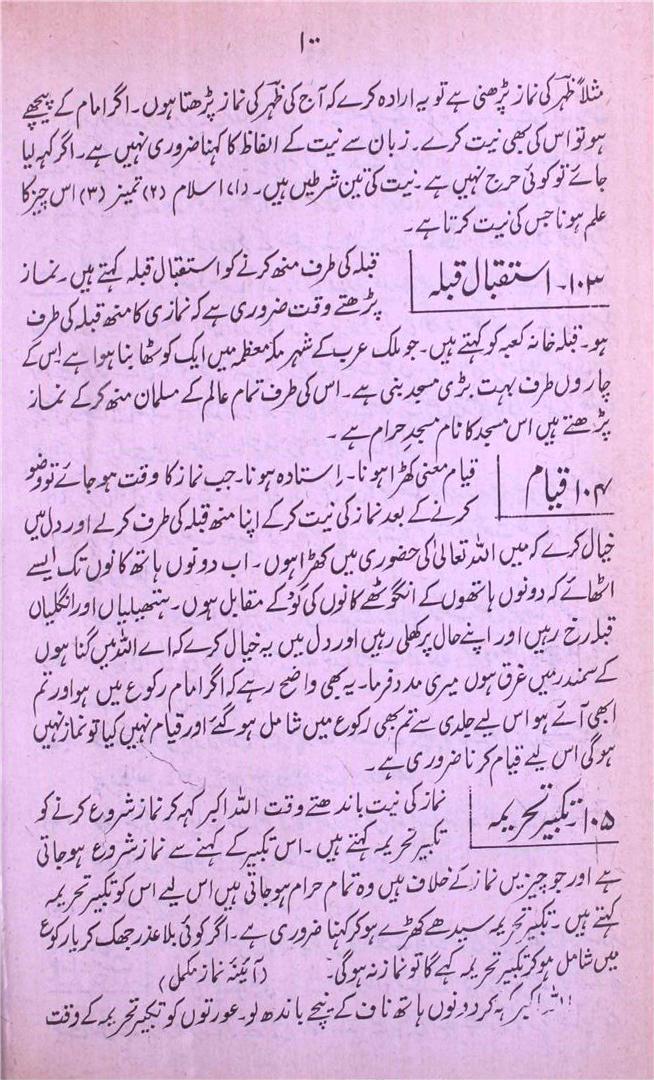 ۱۰۰
مثلاً ظہر کی نماز پڑھنی ہے تو یہ ارادہ کرے کہ آج کی ظہر کی نماز پڑھتا ہوں۔ اگر امام کے پیچھے
ہو تو اس کی بھی نیت کرے۔ زبان سے نیت کے الفاظ کا کہنا ضروری نہیں ہے۔ اگر کہہ لیا
جائے تو کوئی حرج نہیں ہے۔ نیت کی تین شرطیں ہیں۔ (۱) اسلام (۲) تمیز (۳) اس چیز کا
علم ہونا جس کی نیت کرتا ہے۔
۱۰۳۔ استقبال قبلہ
قبلہ کی طرف منھ کرنے کو استقبال قبلہ کہتے ہیں۔ نماز
پڑھتے وقت ضروری ہے کہ نمازی کا منھ قبلہ کی طرف
ہو۔ قبلہ خانہ کعبہ کو کہتے ہیں۔ جو ملک عرب کے شہر مکہ معظمہ میں ایک کوٹھا بنا ہوا ہے اس کے
چاروں طرف بہت بڑی مسجد بنی ہے۔ اس کی طرف تمام عالم کے مسلمان منھ کر کے نماز
پڑھتے ہیں اس مسجد کا نام مسجدِ حرام ہے۔
۱۰۴ قیام
قیام معنی کھڑا ہونا۔ اِستادہ ہونا۔ جب نماز کا وقت ہو جائے تو وضو
کرنے کے بعد نماز کی نیت کر کے اپنا منھ قبلہ کی طرف کرلے اور دل میں
خیال کرے کہ میں اللہ تعالیٰ کی حضوری میں کھڑا ہوں۔ اب دونوں ہاتھ کانوں تک ایسے
اٹھائے کہ دونوں ہاتھوں کے انگوٹھے کانوں کی لَو کے مقابل ہوں۔ ہتھیلیاں اور انگلیاں
قبلہ رخ رہیں اور اپنے حال پر کھلی رہیں اور دل میں یہ خیال کرے کہ اے اللہ میں گناہوں
کے سمندر میں غرق ہوں میری مدد فرما۔ یہ بھی واضح رہے کہ اگر امام رکوع میں ہو اور تم
ابھی آئے ہو اس لیے جلدی سے تم بھی رکوع میں شامل ہو گئے اور قیام نہیں کیا تو نماز نہیں
ہوگی اس لیے قیام کرنا ضروری ہے۔
۱۰۵۔ تکبیر تحریمہ
نماز کی نیت باندھتے وقت اللہ اکبر کہہ کر نماز شروع کرنے کو
تکبیر تحریمہ کہتے ہیں۔ اس تکبیر کے کہنے سے نماز شروع ہو جاتی
ہے اور جو چیزیں نماز کے خلاف ہیں وہ تمام حرام ہو جاتی ہیں اس لیے اس کو تکبیر تحریمہ
کہتے ہیں۔ تکبیر تحریمہ سیدھے کھڑے ہو کر کہنا ضروری ہے۔ اگر کوئی بلا عذر جھک کر یا رکوع
میں شامل ہو کر تکبیر تحریمہ کہے گا تو نماز نہ ہوگی۔ (آئینۂ نماز مکمل)
اللہ اکبر کہہ کر دونوں ہاتھ ناف کے نیچے باندھ لو۔ عورتوں کو تکبیر تحریمہ کے وقت